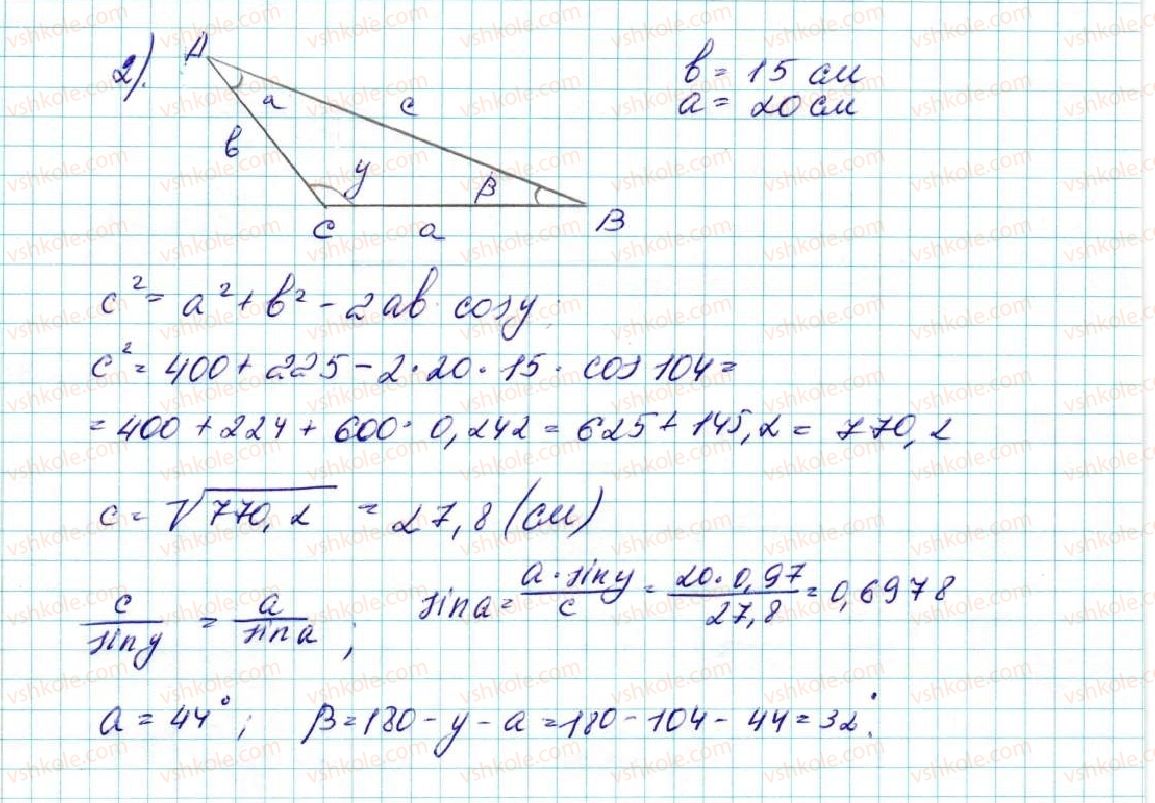 2).
A
a
c
в
y
β
C
a
B
в = 15 см
a = 20 см
c² = a² + в² - 2aв · cos y
c² = 400 + 225 - 2 · 20 · 15 · cos 104 =
= 400 + 224 + 600 · 0,242 = 625 + 145,2 = 770,2
c = √770,2 = 27,8 (см)
c/sin y = a/sin a ; sin a = a · sin y/c = 20 · 0,97/27,8 = 0,6978
a = 44° ; β = 180 - y - a = 180 - 104 - 44 = 32°.
vshkole.com